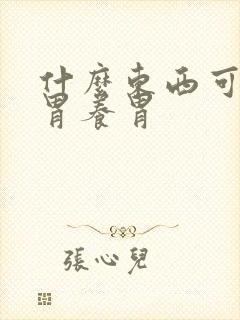 什麼東西可
胃養胃
張心兒